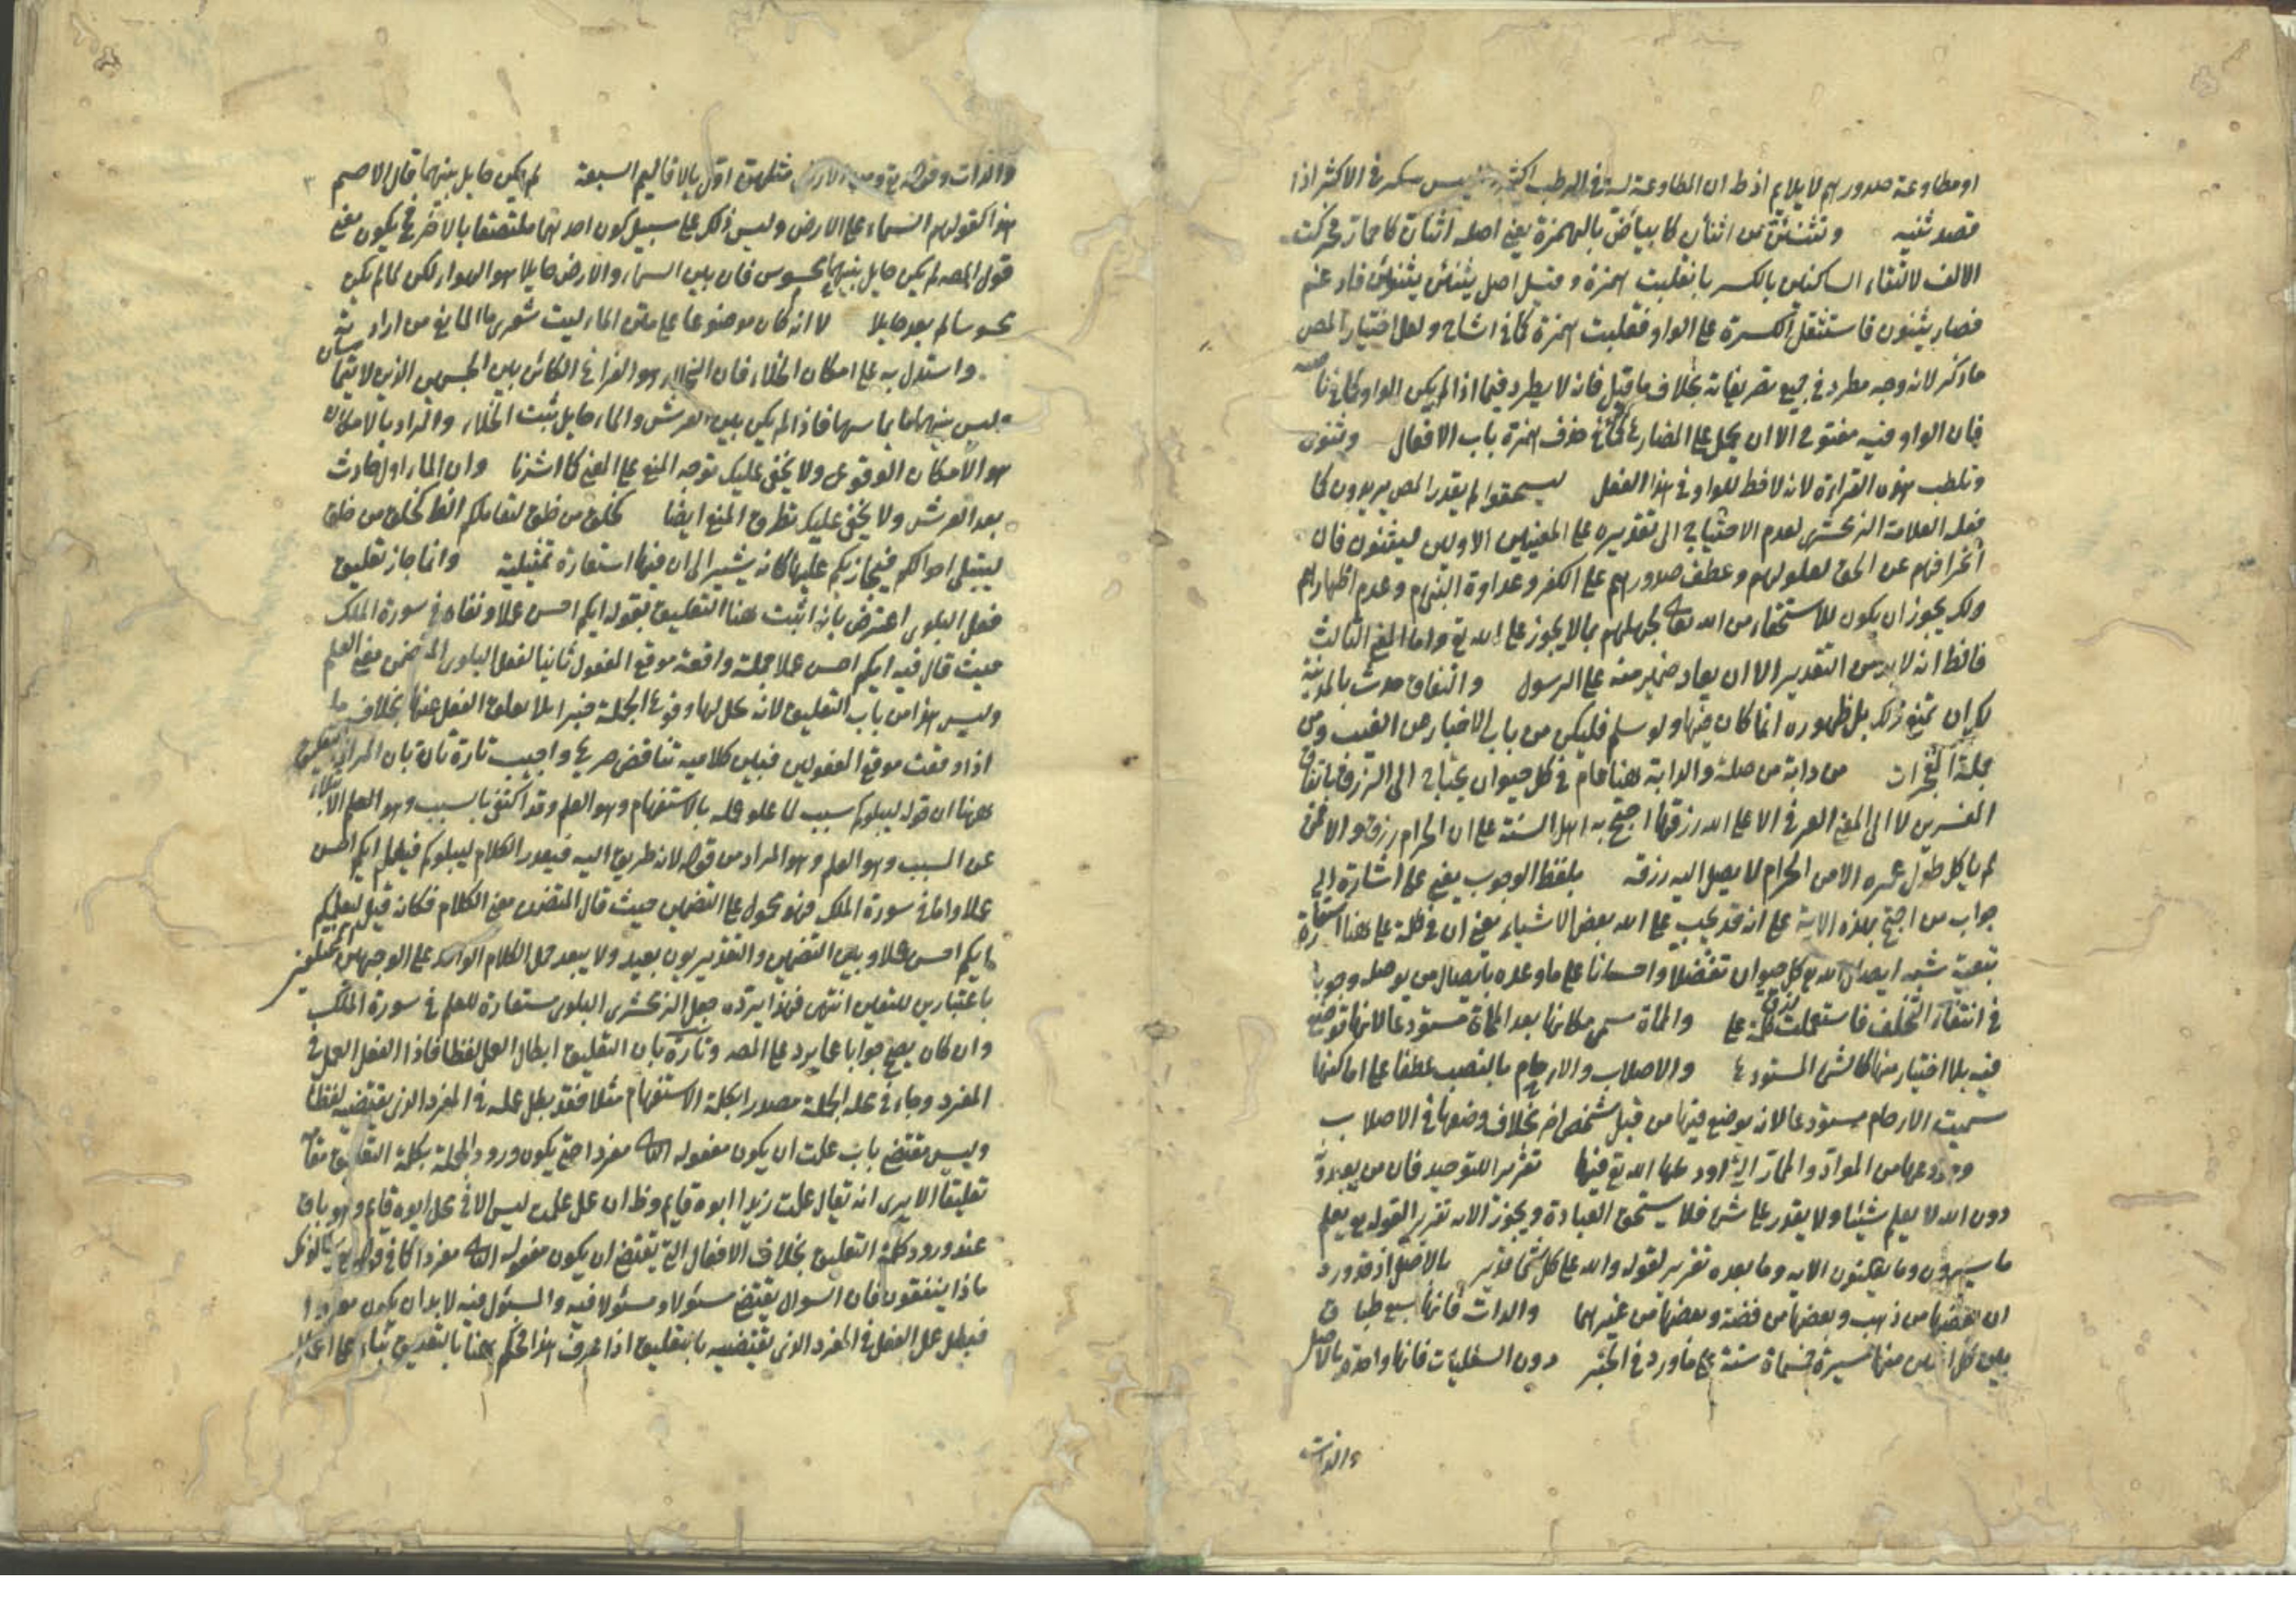 او مطاوعة صدورهم لا يلايم اذ ط ان المطاوعة ليس في الاكثر اذا
قصد ثنيه وتثنئن من اثنأن كابياض بالهمزة يعني اصله اثنان كاحمار فحركت
الالف لالتقاء الساكنين بالكسر فانقلبت همزة وقيل اصل يثنئن يثنونن فادغم
فصار يثنون فاستثقل الكسرة على الواو فقلبت همزة كما في اشاح ولعل اختيار المص
ما ذكر لانه وجه مطرد في جميع تصريفاته بخلاف ما قيل فانه لا يطرد فيما اذا لم يكن الواو كما في
فان الواو فيه مفتوح الا ان يحمل على المضارع كما في حذف همزة باب الافعال وتثنون
هذه القراءة لانه لاحظ للواو في هذا الفعل ليستخفوا لم يقدر المص يريدون كما
فعله العلامة الزمخشرى لعدم الاحتياج الى تقديره على المعنيين الاولين ليثنون فان
انحرافهم عن الحق لعلولهم وعطف صدورهم على الكفر وعداوة النبي م وعدم اظهارهم
ذلك يجوز ان يكون للاستخفاء من الله تعالى لجهلهم بما لا يجوز على الله تع واما المعنى الثالث
فالظ انه لا بد من التقدير الا ان يعاد ضمير منه على الرسول والنفاق حدث بالمدينة
لك ان تمنع ذلك بل ظهوره انما كان فيها ولو سلم فليكن من باب الاخبار عن الغيب ومن
جملة المعجزات من دابة من صلة والدابة هنا عام في كل حيوان يحتاج الى الرزق باتفاق
المفسرين لا الى المعنى العرفي الا على الله رزقها احتج به اهل السنة على ان الحرام رزق والا فمن
لم ياكل طول عمره الا من الحرام لا يصل اليه رزقه بلفظ الوجوب يعني على اشارة الى
جواب من احتج بهذه الاية على انه قد يجب على الله بعض الاشياء يعني ان في كلمة على هنا استعارة
تبعية شبه ايصال الله رزق كل حيوان تفضلا واحسانا على ما وعده بايصال من يوصله وجوبا
في انتفاء التخلف فاستعملت كلمة على والماة سمى مكانها بعد الماة مستودعا لانها توضع
فيه بلا اختيار منها كالشئ المستودع والاصلاب والارحام بالنصب عطفا على اماكنها
سميت الارحام مستودعا لانه يوضع فيها من قبل شخص اخر بخلاف وضعها في الاصلاب
ومودعها من المواد والمقار التي اودعها الله تع فيها تقرير للتوحيد فان من يعبدون
دون الله لا يعلم شيئا ولا يقدر على شئ فلا يستحق العبادة ويجوز الاية تقرير القوله يعلم
ما يسرون وما يعلنون الاية وما بعده تقرير لقوله والله على كل شئ قدير بالاصل اذ قد ورد
ان بعضها من ذهب وبعضها من فضة وبعضها من غيرهما والذات فانها سبع طباق
بين كل اثنين منها مسيرة خمسماة سنة على ما ورد في الخبر دون السفليات فانها واحدة بالاصل
والذات
والذات وقوله تع ومن الارض مثلهن اول بالاقاليم السبعة لم يكن حايل بينهما قال الاصم
هذا كقولهم السماء على الارض وليس ذلك على سبيل كون احدهما ملتصقا بالاخر فح يكون معنى
قول المصه لم يكن حايل بينهما محسوس فان بين السماء والارض حايلا هو الهواء لكن لما لم يكن
محسوسا لم يعد حايلا لا انه كان موضوعا على متن الماء ليت شعرى ما المانع من ارادته
واستدل به على امكان الخلاء فان الخلاء هو الفراغ الكائن بين الجسمين الذين لا يتماسان
وليس بينهما ما يماسهما فاذا لم يكن بين العرش والماء حايل ثبت الخلاء والمراد بالامكان
هو الامكان الوقوعى ولا يخفى عليك توجه المنع على المعنى كما اشرنا وان الماء اول حادث
بعد العرش ولا يخفى عليك تطرق المنع ايضا كخلق من خلق لتعاملكم الظ كخلق من خلق
ليبتلى احوالكم فيجازيكم عليها كانه يشير الى ان فيها استعارة تمثيلية وانما جاز تعليق
فعل البلوى اعترض بانه اثبت هنا التعليق بقوله ايكم احسن عملا ونفاه في سورة الملك
حيث قال فيه ايكم احسن عملا جملة واقعة موقع المفعول ثانيا لفعل البلوى المتضمن معنى العلم
وليس هذا من باب التعليق لانه يخل لها وقوع الجملة خبرا بلا يعلق الفعل عنها بخلاف ما
اذا وقعت موقع المفعولين فبين كلاميه تناقض صريح واجيب تارة بان المراد
ههنا ان قوله ليبلوكم سبب لما علق عمله بالاستفهام وهو العلم وقد اكتفى بالسبب وهو العلم الابتلاء
عن السبب وهو العلم وهو المراد من قوله لانه طريق اليه فيقدر الكلام ليبلوكم فيعلم ايكم احسن
عملا واما في سورة الملك فهو محمول على التضمين حيث قال المتضمن معنى الكلام فكانه قيل ليعلمكم
ايكم احسن عملا وبين التضمين والتقدير بون بعيد ولا يبعد حمل الكلام الواحد على الوجهين المختلفين
باعتبارين للتعلق انتهى فهذا يرده جعل الزمخشرى البلوى مستعارة للعلم في سورة الملك
وان كان يصح جوابا عما يرد على المصه وتارة بان التعليق ابطال العمل لفظا فاذا الفعل العمل في
المفرد وجاء في محله الجملة مصدرا بكلمة الاستفهام مثلا فقد بطل عمله في المفرد الذى يقتضيه لفظا
وليس مقتضى باب علمت ان يكون مفعوله الثاني مفردا حتى يكون ورود الجملة بكلمة التعليق
تعليقا الا يرى انه تقال علمت زيدا ابوه قايم وظ ان عمل علمت ليس الا في محل ابوه قايم وهو باق
عند ورود كلمة التعليق بخلاف الافعال التى يقتضى ان يكون مفعوله الثاني مفردا كما في قوله تع يسألونك
ماذا ينفقون فان السوال يقتضى مسئولا ومسئولا فيه والمسئول فيه لا بد ان يكون مفردا
فبطل عمل الفعل في المفرد الذى يقتضيه بالتعليق اذا عرف هذا فحكم هنا بالتعليق بناء على